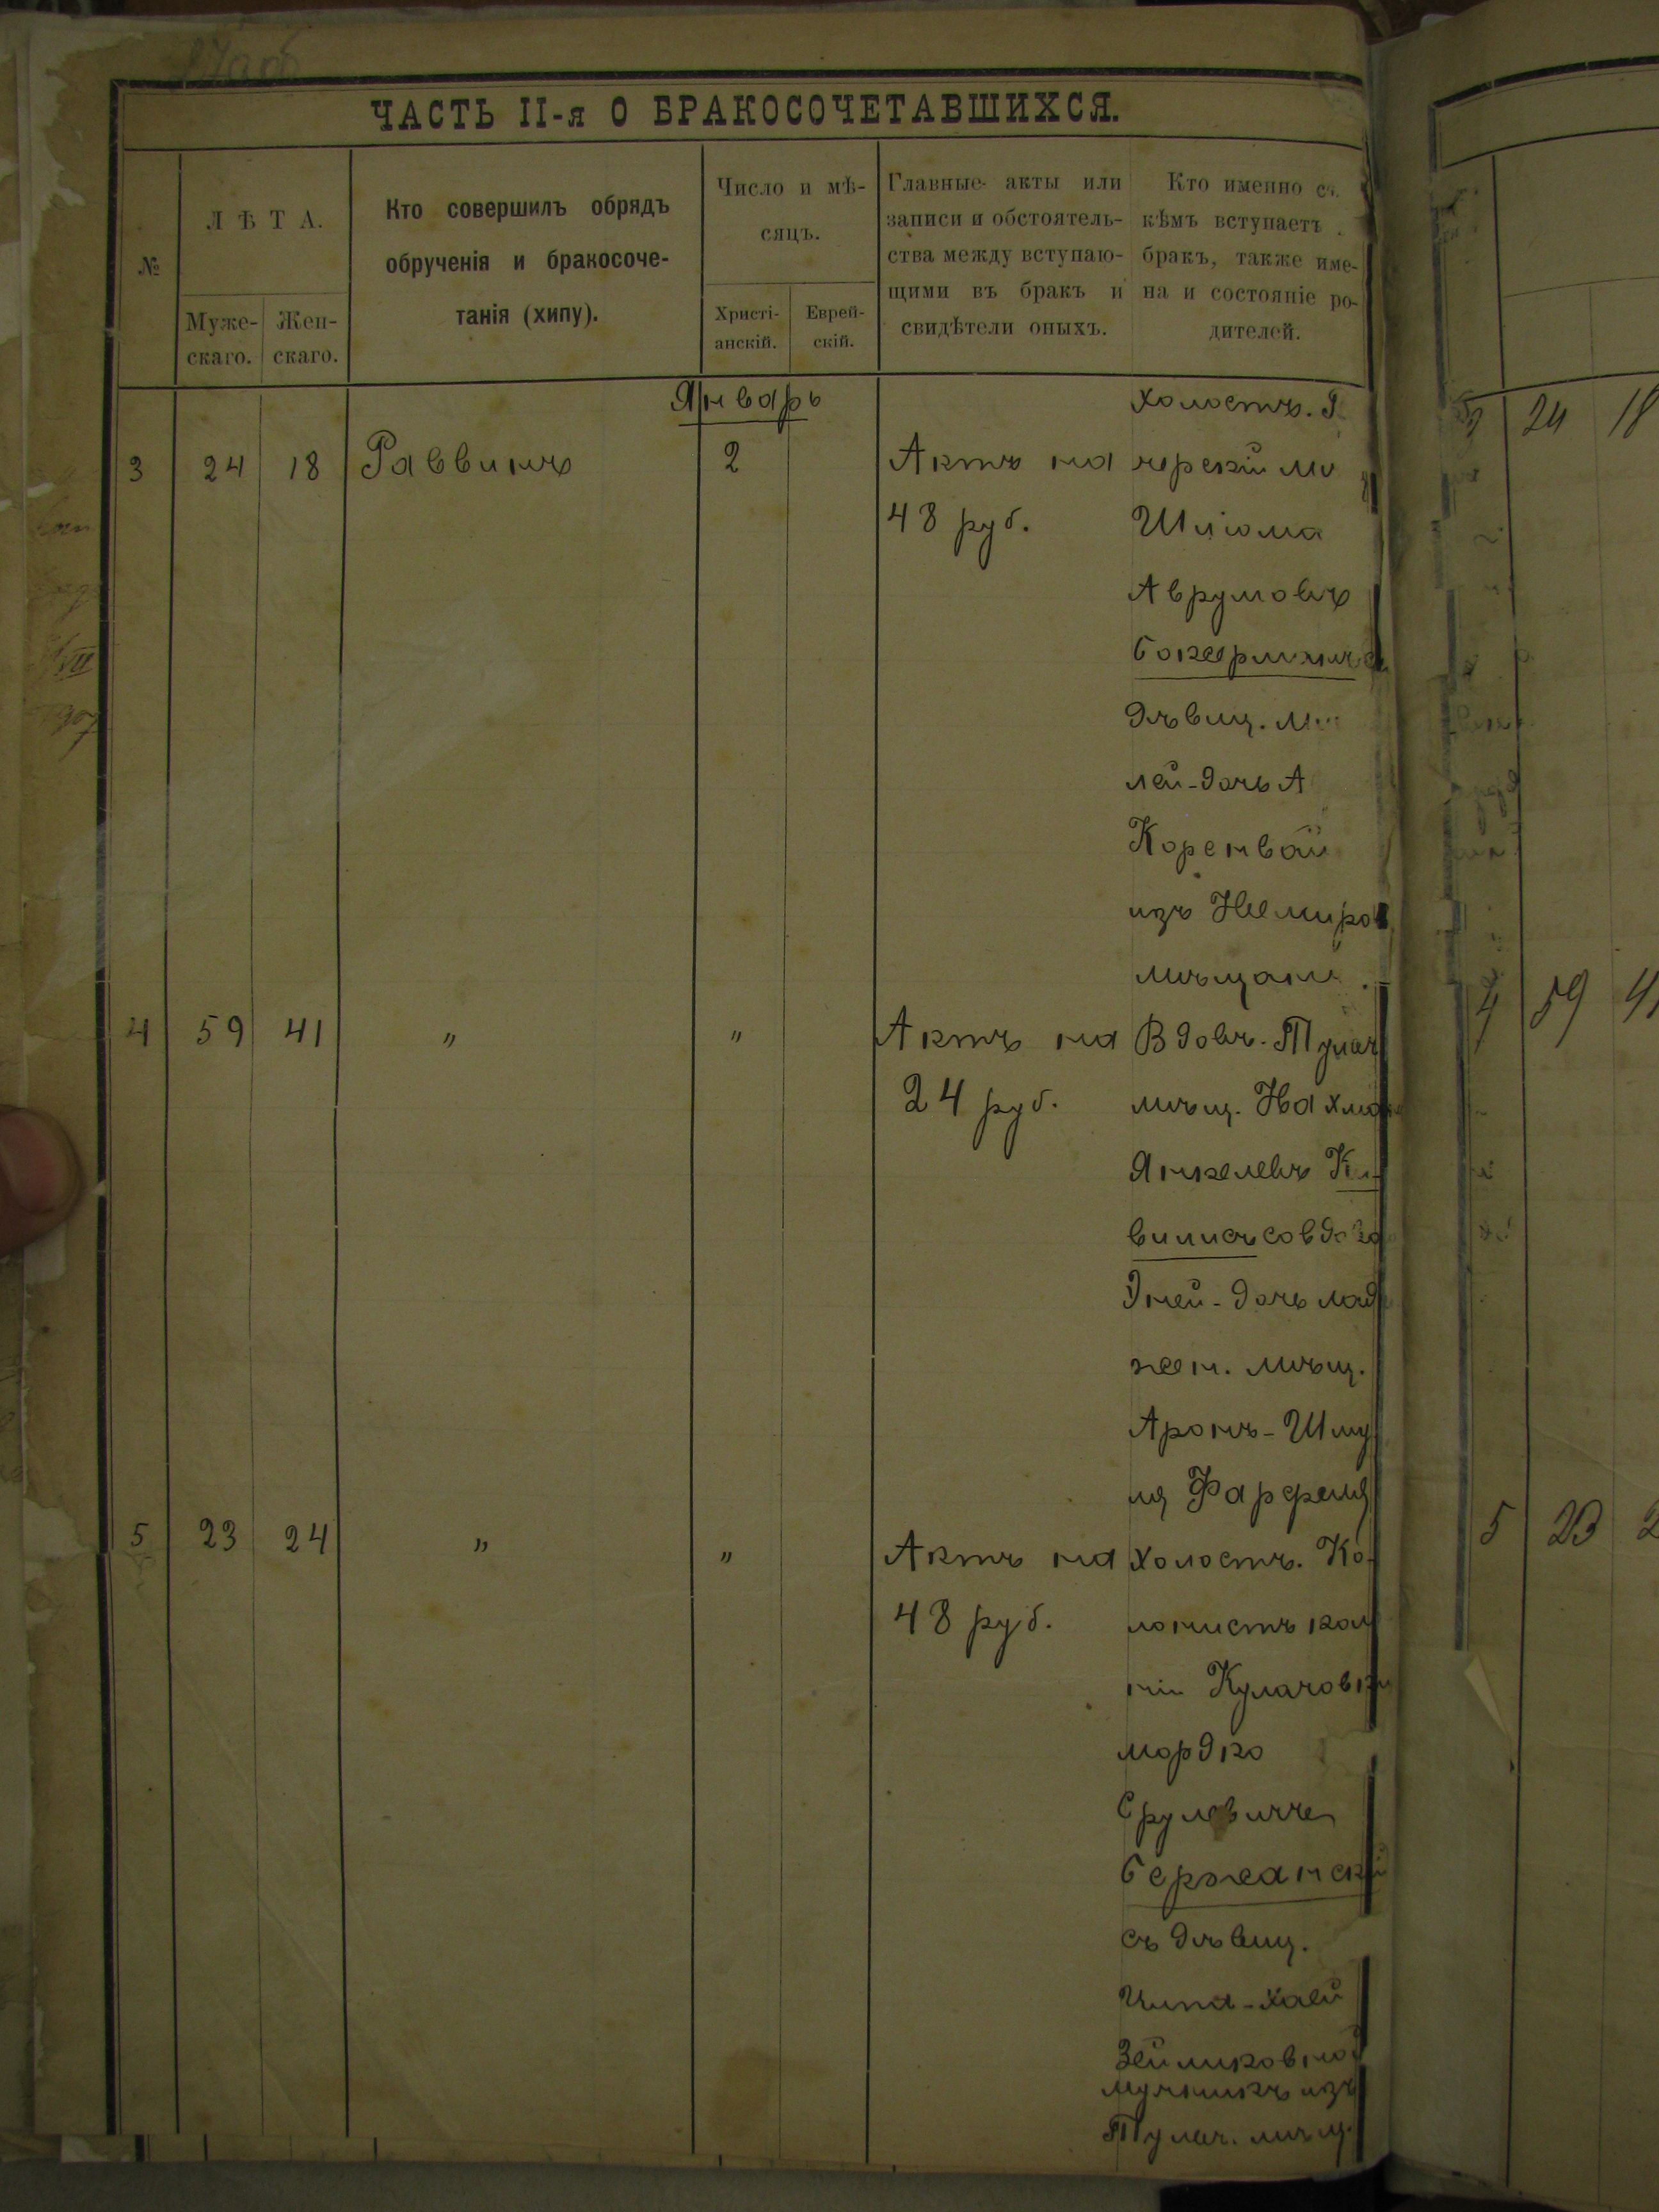 ЧАСТЬ II-я О БРАКОСОЧЕТАВШИХСЯ.
№
ЛѢТА.
Муже-
скаго.
Жен-
скаго.
Кто совершилъ обрядъ
обрученія и бракосоче-
танія (хипу).
Число и мѣ-
сяцъ.
Христі-
анскій.
Еврей-
скій.
Главные акты или
записи и обстоятель-
ства между вступаю-
щими въ бракъ и
свидѣтели оныхъ.
Кто именно съ
кѣмъ вступаетъ
бракъ, также име-
на и состояніе ро-
дителей.
Январь
3 24 18 Раввинъ 2 Актъ на
48 руб.
холостъ.
Шлома
Аврумовъ
дѣвиц.
лей-дочь А
Коренвай
изъ Немиров
мѣщан
4 59 41 " " Актъ на
24 руб.
Вдовъ. Тульч
мѣщ. Нахман
Янкелевъ Ки-
вилисъ со вдово
Эней-дочь лад
жен. мѣщ.
Аронъ-Шму
ля Фарфеля
5 23 24 " " Актъ на
48 руб.
холостъ. Ко-
лонистъ коло
ніи Куличовки
Мордко
Срулевичъ
Бержански
съ дѣвиц.
Хаей
Зейликовной
Мучникъ изъ
Тульч. мѣщ.
3 24 18
4 59 41
5 23 2